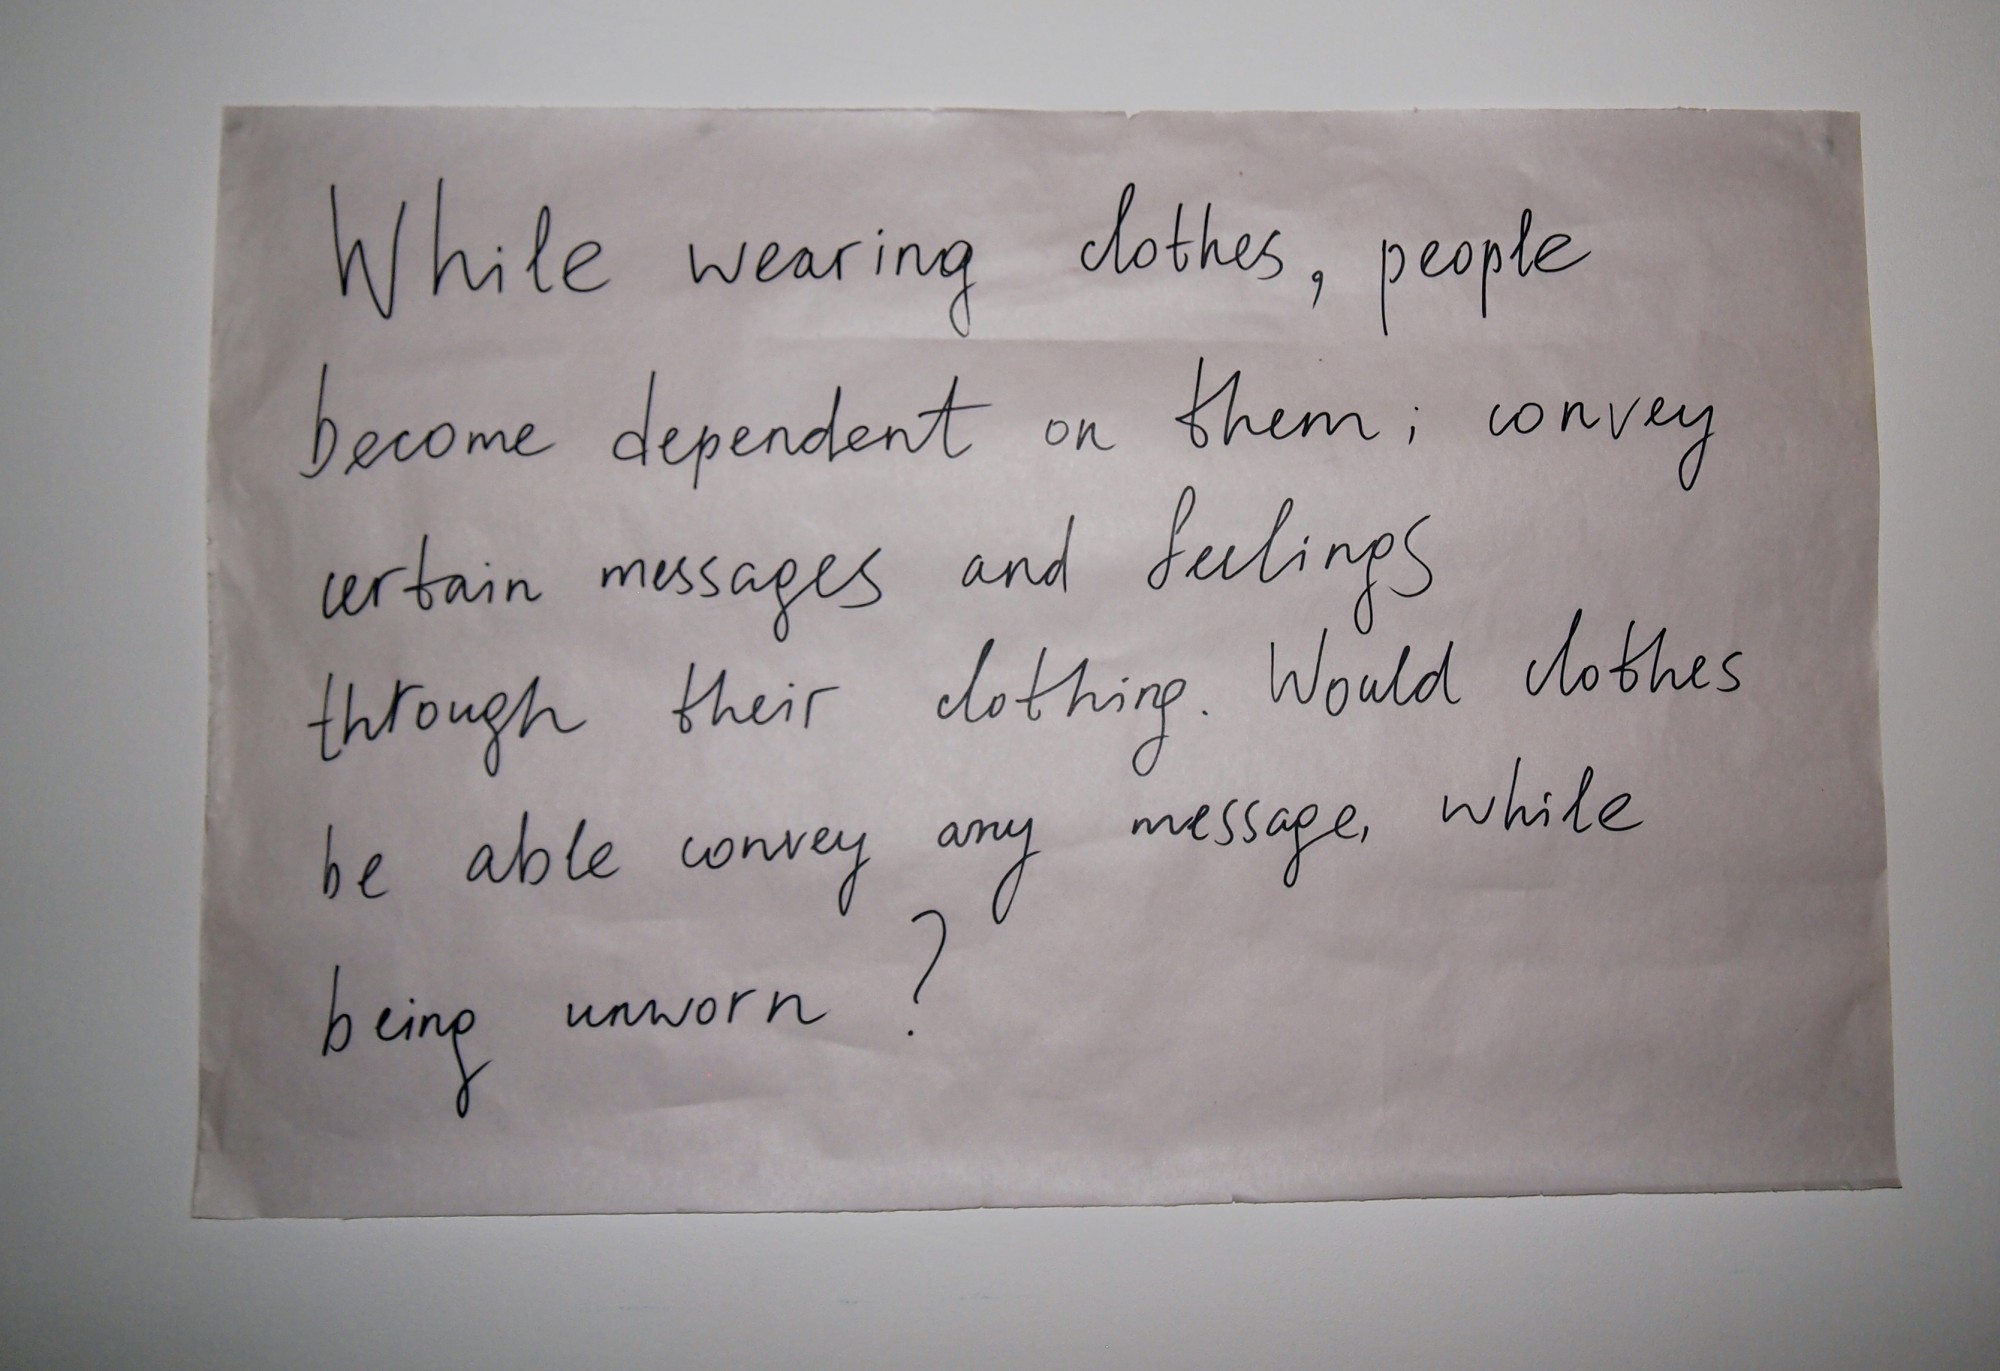 While wearing clothes, people
become dependent on them; convey
certain messages and feelings
through their clothing. Would clothes
be able convey any message, while
being unworn?